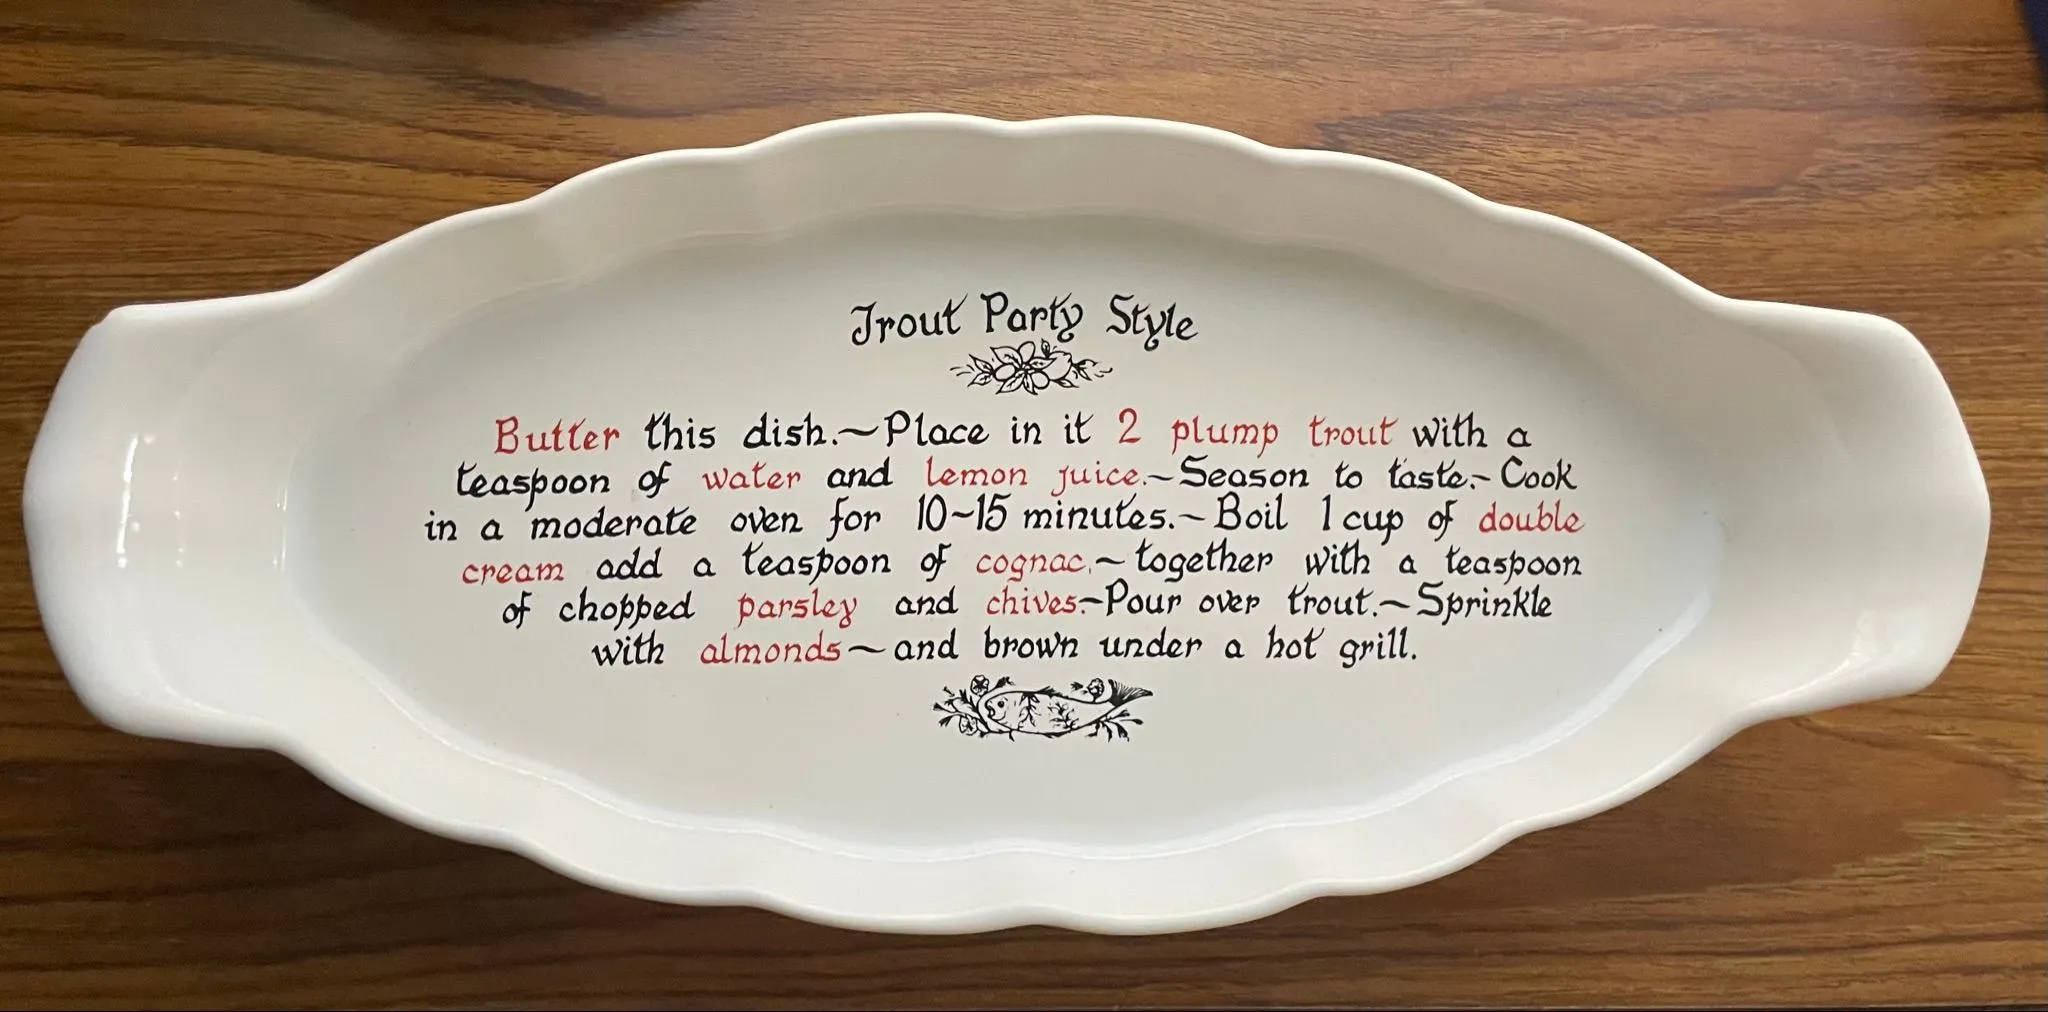 Trout Party Style
Butter this dish.~Place in it 2 plump trout with a
teaspoon of water and lemon juice.~Season to taste.~Cook
in a moderate oven for 10~15 minutes.~Boil 1 cup of double
cream add a teaspoon of cognac.~together with a teaspoon
of chopped parsley and chives.~Pour over trout.~Sprinkle
with almonds~and brown under a hot grill.